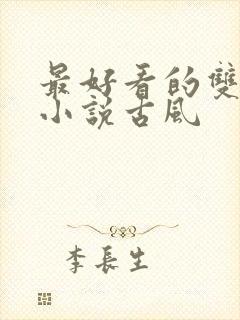 最好看的雙
小說古風
李長生